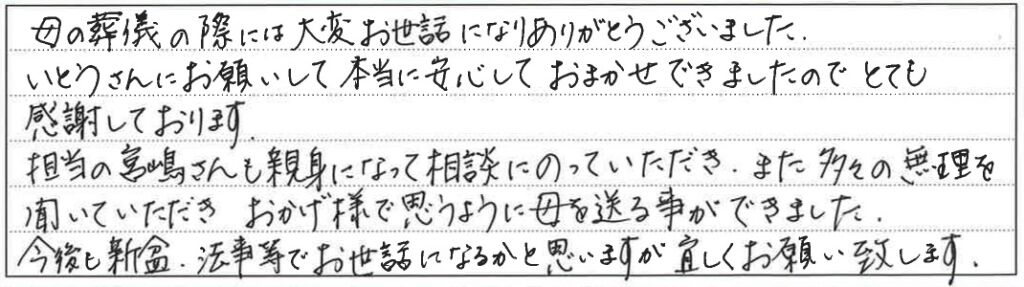 母の葬儀の際には大変お世話になりありがとうございました.
いとうさんにお願いして本当に安心しておまかせできましたのでとても
感謝しております.
担当の宮嶋さんも親身になって相談にのっていただき.また多々の無理を
聞いていただき おかげ様で思うように母を送る事ができました.
今後も新盆.法事等でお世話になるかと思いますが宜しくお願い致します.